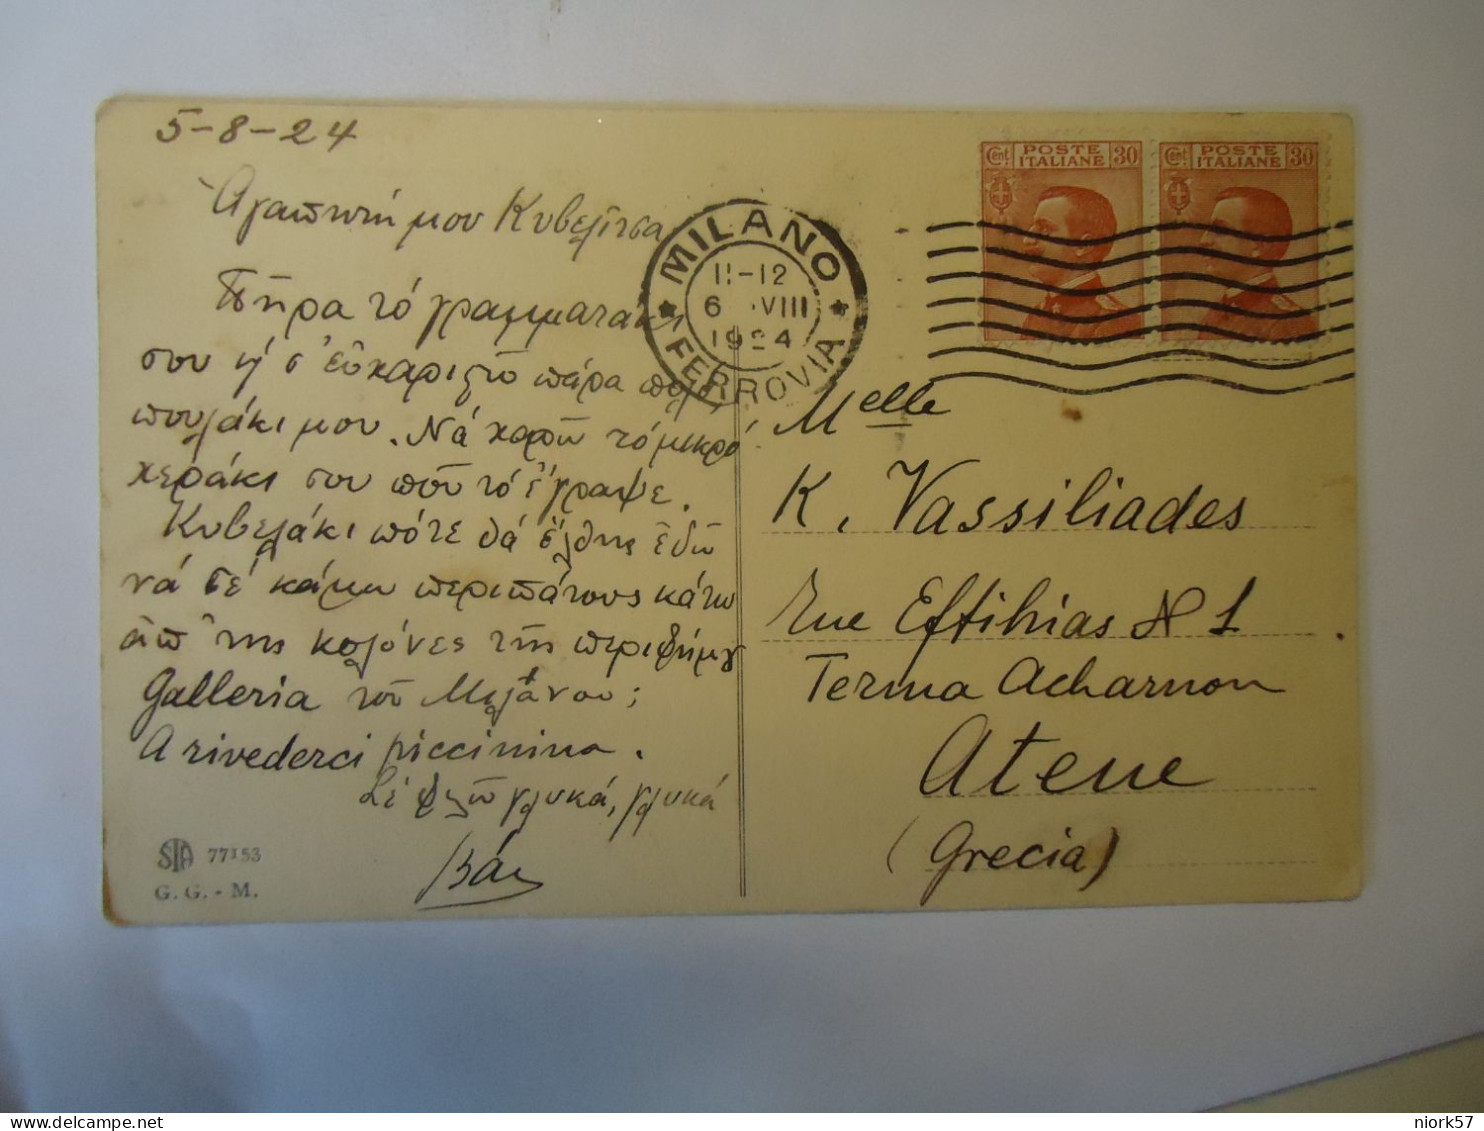 5-8-24
Ἀγαπητή μου Κυβελίτσα
Πῆρα τό γραμματάκι
σου κ' σ' εὐχαριστῶ πάρα πολύ,
πουλάκι μου. Νά χαρῶ τό μικρό
χεράκι σου ποῦ τό ἔγραψε.
Κυβελάκι πότε θά ἔλθης ἐδῶ
νά σέ κάμω περιπάτους κάτω
ἀπ' τῆς κολόνες τῆς περιφήμου
Galleria τοῦ Μιλάνου;
A rivederci piccinina.
Σέ φιλῶ γλυκά, γλυκά
STA 77153
G. G. - M.
MILANO
11-12
6 VIII
1924
FERROVIA
POSTE ITALIANE
Cent. 30
POSTE ITALIANE
Cent. 30
Melle
K. Vassiliades
Rue Eftihias N 1
Terma Acharnon
Atene
(Grecia)
niork57